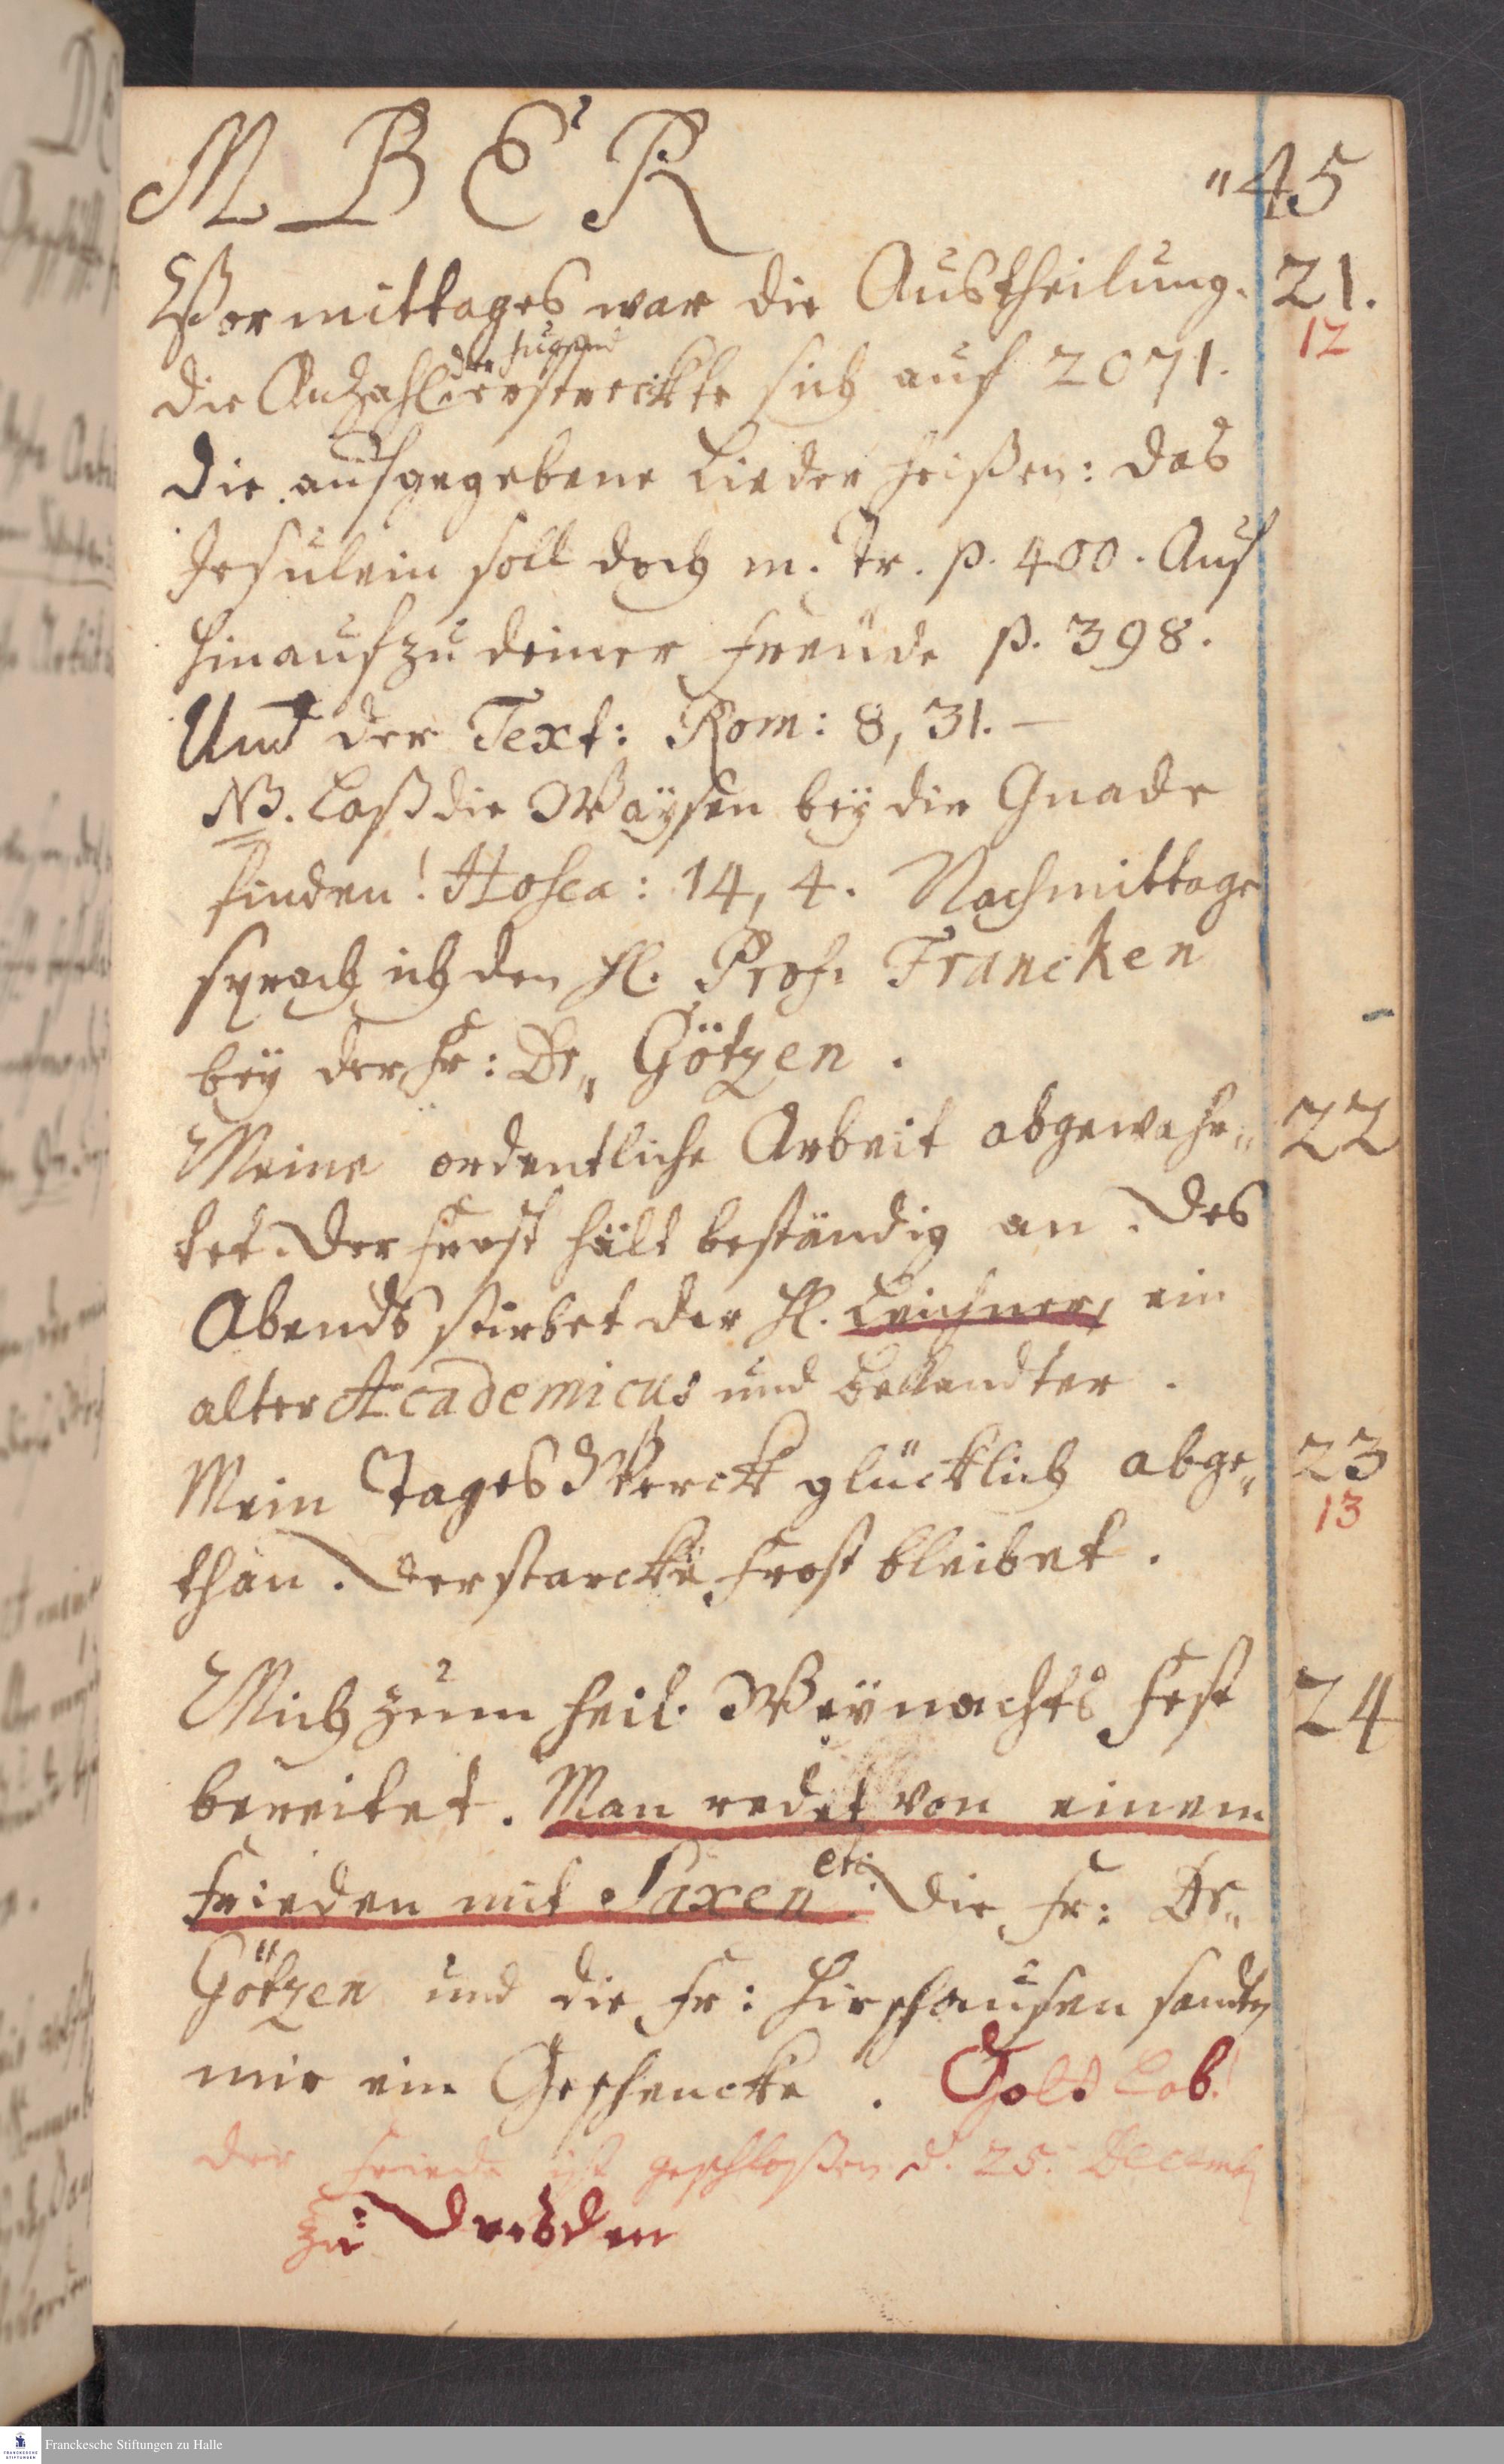 M B E R "45
Vormittages war die Austheilung. 21.
12
der Jugend
die Anzahl erstreckte sich auf 2071.
die ausgegebene Lieder heißen: das
Jesulein soll doch m. Tr. p. 400. Auf
hinauf zu deiner Freude p. 398.
Und der Text: Rom: 8, 31. —
NB. Laß die Waÿsen beÿ dir Gnade
finden! Hosea: 14, 4. Nachmittage
sprach ich den H. Prof. Francken
beÿ der Fr: Dr„ Götzen.
Meine ordentliche Arbeit abgewahr„ 22
tet. Der Frost hält beständig an. Des
Abends stirbet der H. Leichner, ein
alter Academicus und Bekandter.
Mein Tages Werck glücklich abge„ 23
13
than. Der starcke Frost bleibet.
Mich zum heil. Weÿnachts Fest 24
bereitet. Man redet von einem
Frieden mit Saxen etc. Die Fr: Dr„
Götzen und die Fr: Hirschausen sandten
mir ein Geschencke. Gott Lob!
der Friede ist geschloßen d. 25. Decemb
zu Dresden
Franckesche Stiftungen zu Halle
FRANCKESCHE STIFTUNGEN